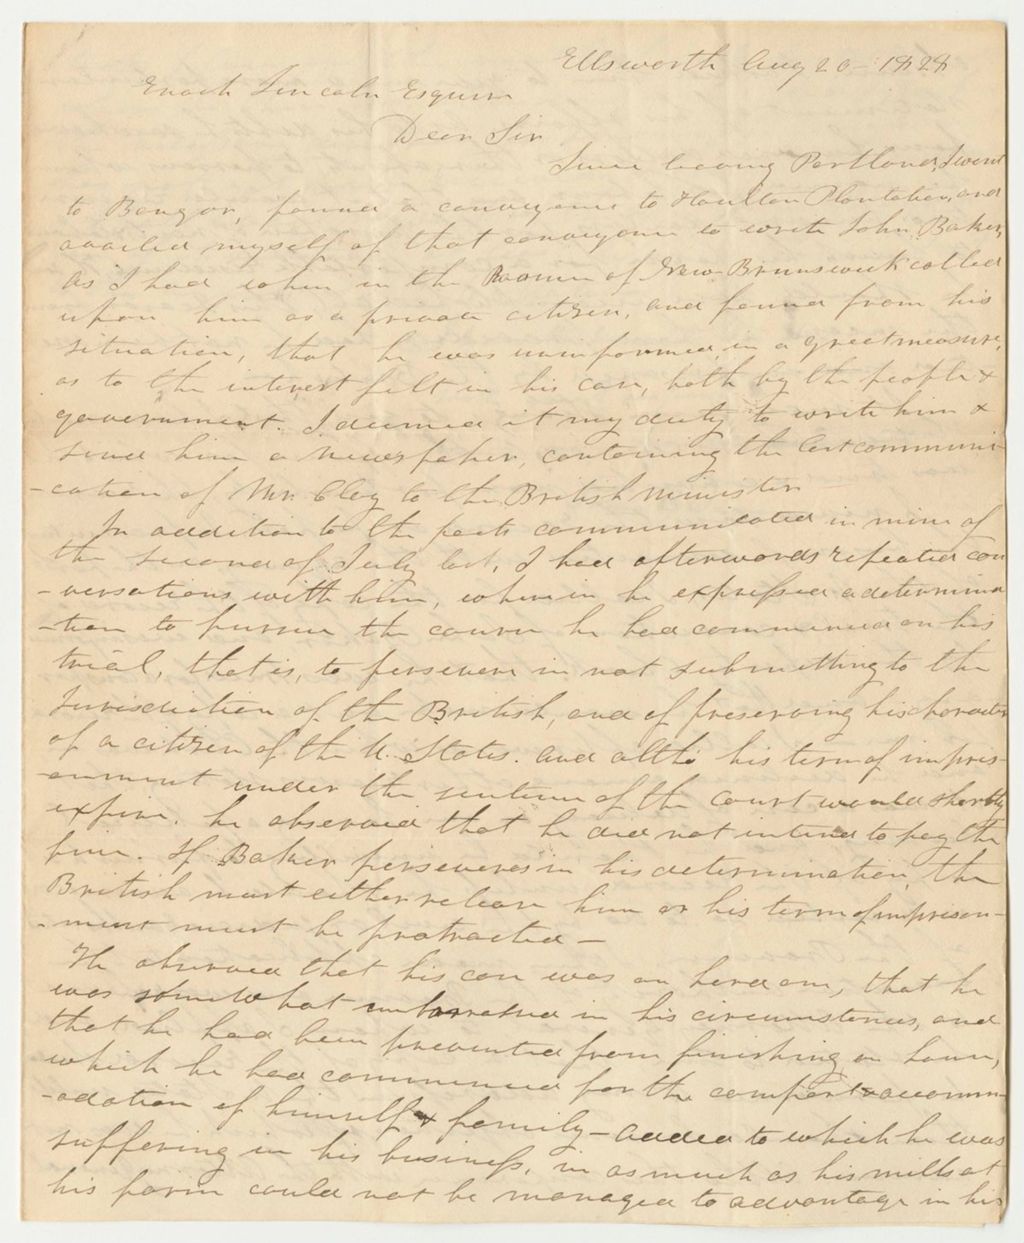 Ellsworth Aug 20 - 1828
Enoch Lincoln Esquire
Dear Sir
Since leaving Portland, I went
to Bangor, found a conveyance to Houlton Plantation, and
availed myself of that conveyance to write John Baker,
as I had when in the Province of New-Brunswick called
upon him as a private citizen, and found from his
situation, that he was uninformed, in a great measure,
as to the interest felt in his case, both by the people &
government. I deemed it my duty to write him &
send him a newspaper, containing the last communi-
-cation of Mr. Clay to the British minister
In addition to the facts communicated in mine of
the second of July last, I had afterwards repeated con
-versations with him, wherein he expressed a determina
-tion to pursue the course he had commenced on his
trial, that is, to persevere in not submitting to the
Jurisdiction of the British, and of preserving his character
of a citizen of the U. States. and altho his term of impris-
-onment under the sentence of the court would shortly
expire. he observed that he did not intend to pay the
fine. If Baker perseveres in his determination, the
British must either release him or his term of imprison-
-ment must be protracted -
He observed that his case was an hard one, that he
was somewhat embarrassed in his circumstances, and
that he had been prevented from finishing an house,
which he had commenced for the comfort & accomm-
-odation of himself & family - added to which he was
suffering in his business, in as much as his mills at
his farm could not be managed to advantage in his